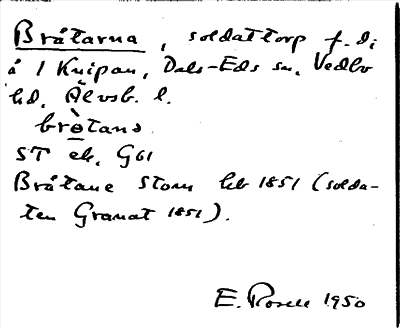 Bråtarna, soldattorp f. d.
å 1 Knipan, Dals-Eds sn, Vedbo
hd, Älvsb. l.
brɵ̀tana
ST ek. G61
Bråtane Stom hb 1851 (solda-
ten Granat 1851).
E. Rosell 1950